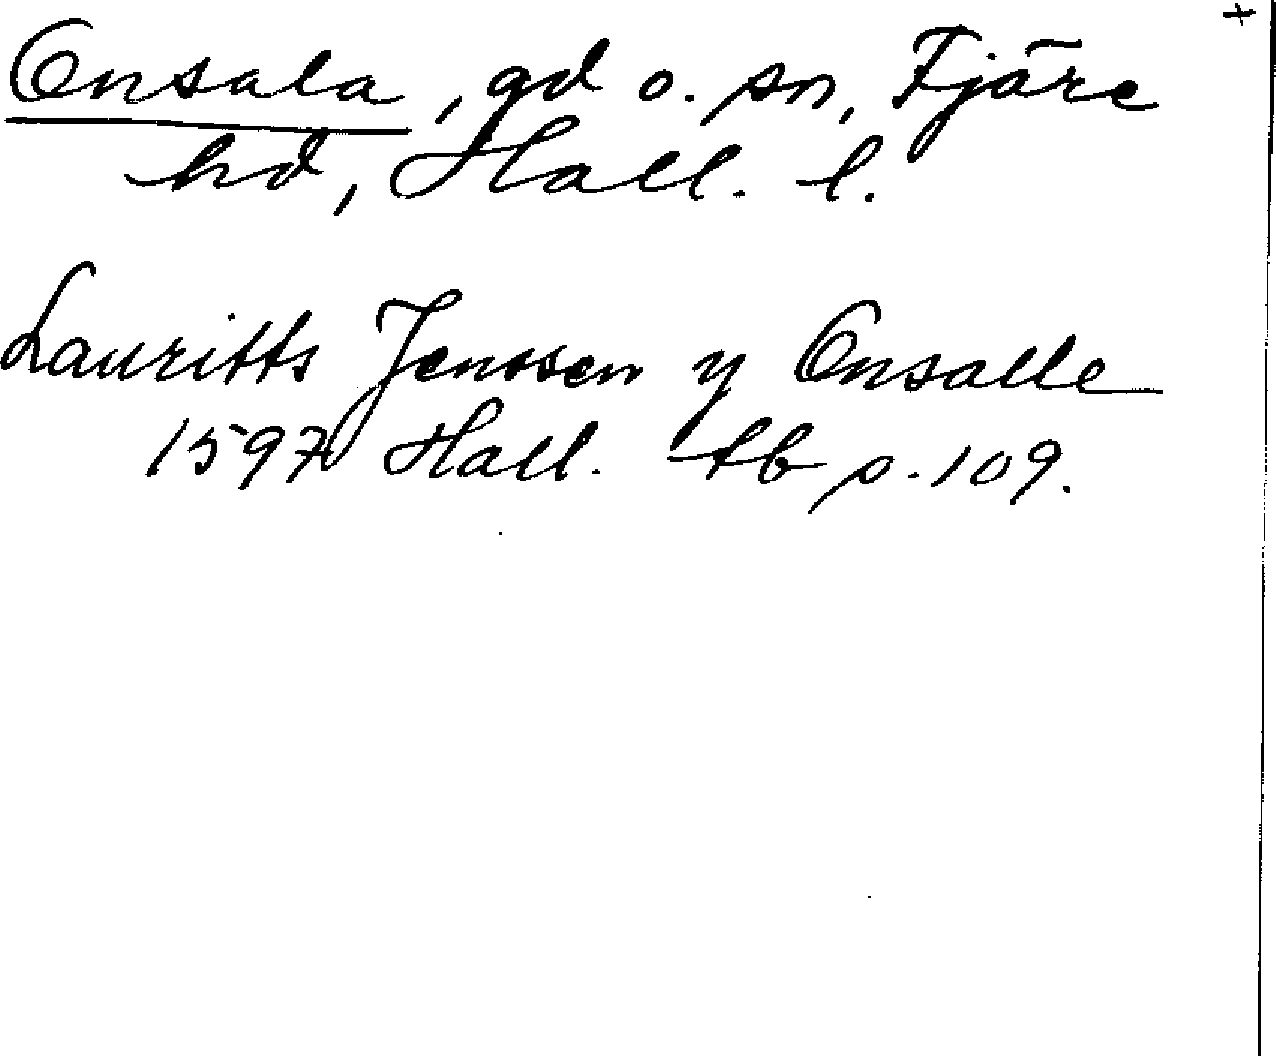 +
Onsala, gd o. sn, Fjäre
hd, Hall. l.
Lauritts Jenssen y Onsalle
1597 Hall. tb s. 109.